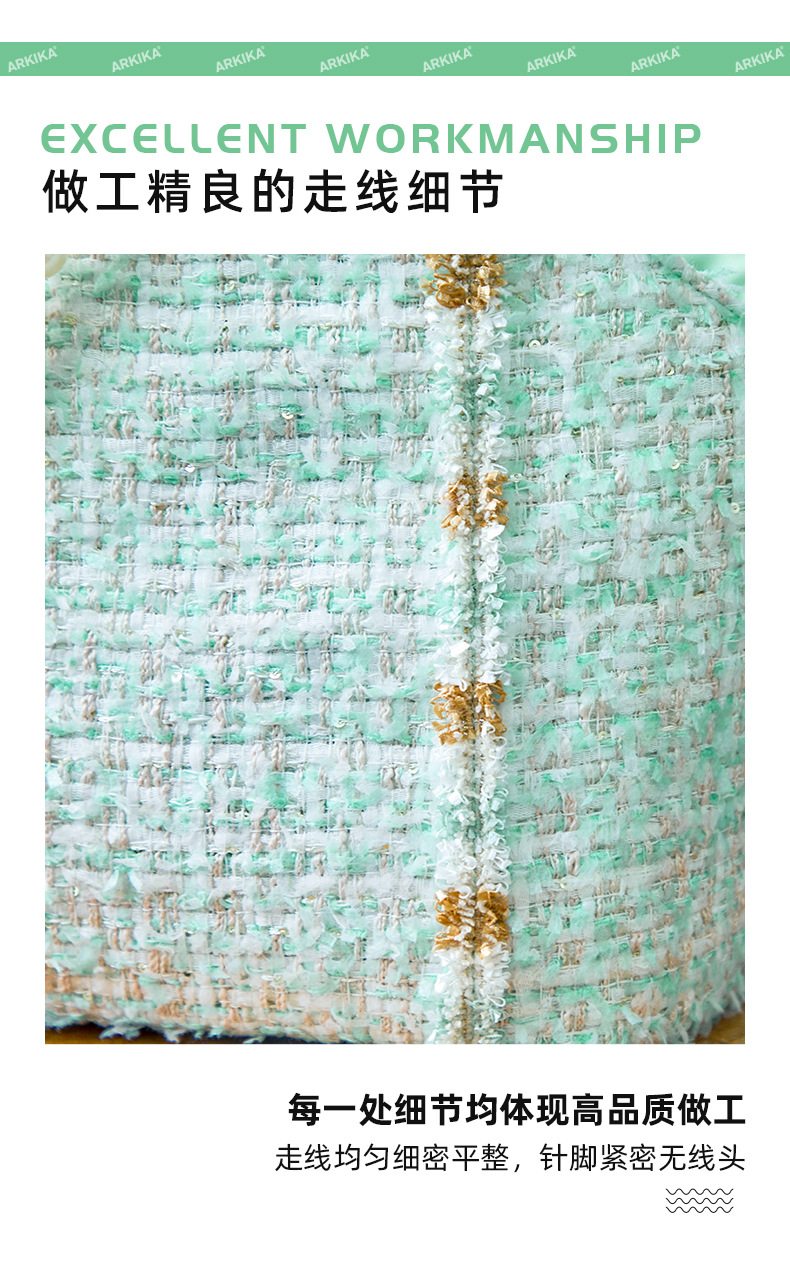 ARKIKA ARKIKA ARKIKA ARKIKA ARKIKA ARKIKA ARKIKA ARKIKA
EXCELLENT WORKMANSHIP
做工精良的走线细节
每一处细节均体现高品质做工
走线均匀细密平整，针脚紧密无线头